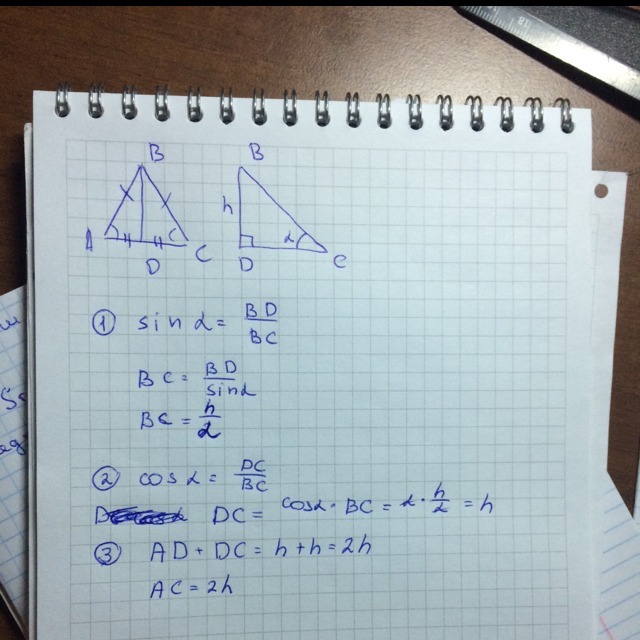 B B
h
A D C D α C
① sin α = BD/BC
BC = BD/sin α
BC = h/α
② cos α = DC/BC
DC = cos α · BC = α · h/α = h
③ AD + DC = h + h = 2h
AC = 2h